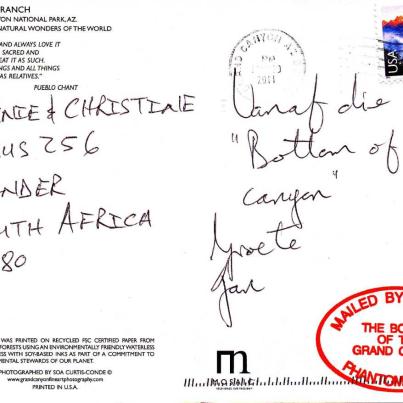 RANCH
ON NATIONAL PARK, AZ.
NATURAL WONDERS OF THE WORLD
AND ALWAYS LOVE IT
SACRED AND
EAT IT AS SUCH.
NGS AND ALL THINGS
AS RELATIVES."
PUEBLO CHANT
NIE & CHRISTINE
US 256
NDER
UTH AFRICA
80
GRAND CANYON
2011
USA
Vanaf die
"Bottom of
canyon"
Groete
Jan
WAS PRINTED ON RECYCLED FSC CERTIFIED PAPER FROM
FORESTS USING AN ENVIRONMENTALLY FRIENDLY WATERLESS
ESS WITH SOY-BASED INKS AS PART OF A COMMITMENT TO
MENTAL STEWARDS OF OUR PLANET.
PHOTOGRAPHY BY SOA CURTIS-CONDE ©
www.grandcanyonfineartphotography.com
PRINTED IN U.S.A.
m
mosaic
MAILED BY
THE BO
OF T
GRAND C
PHANTOM